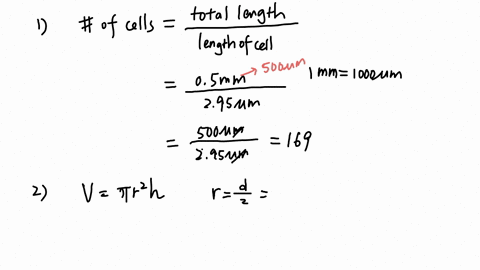 1) # of cells = total length / length of cell
= 0.5mm → 500um / 2.95um 1mm = 1000um
= 500um / 2.95um = 169
2) V = πr²h r = d/2 =